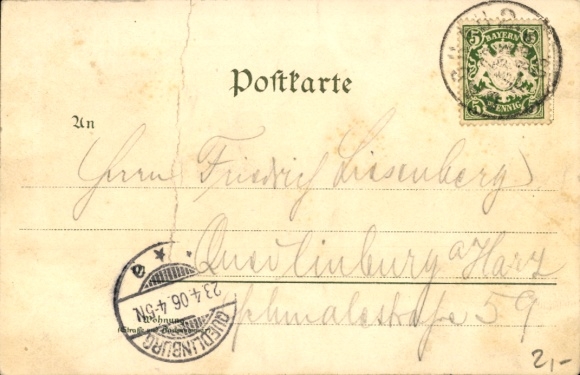 5 BAYERN 5
5 PFENNIG 5
Postkarte
An
Herrn Friedrich Liesenberg
Quedlinburg a/Harz
Schmalestraße 59
Wohnung
(Straße und Hausnummer)
QUEDLINBURG
23.4.06.4-5N.
* * a
2,-